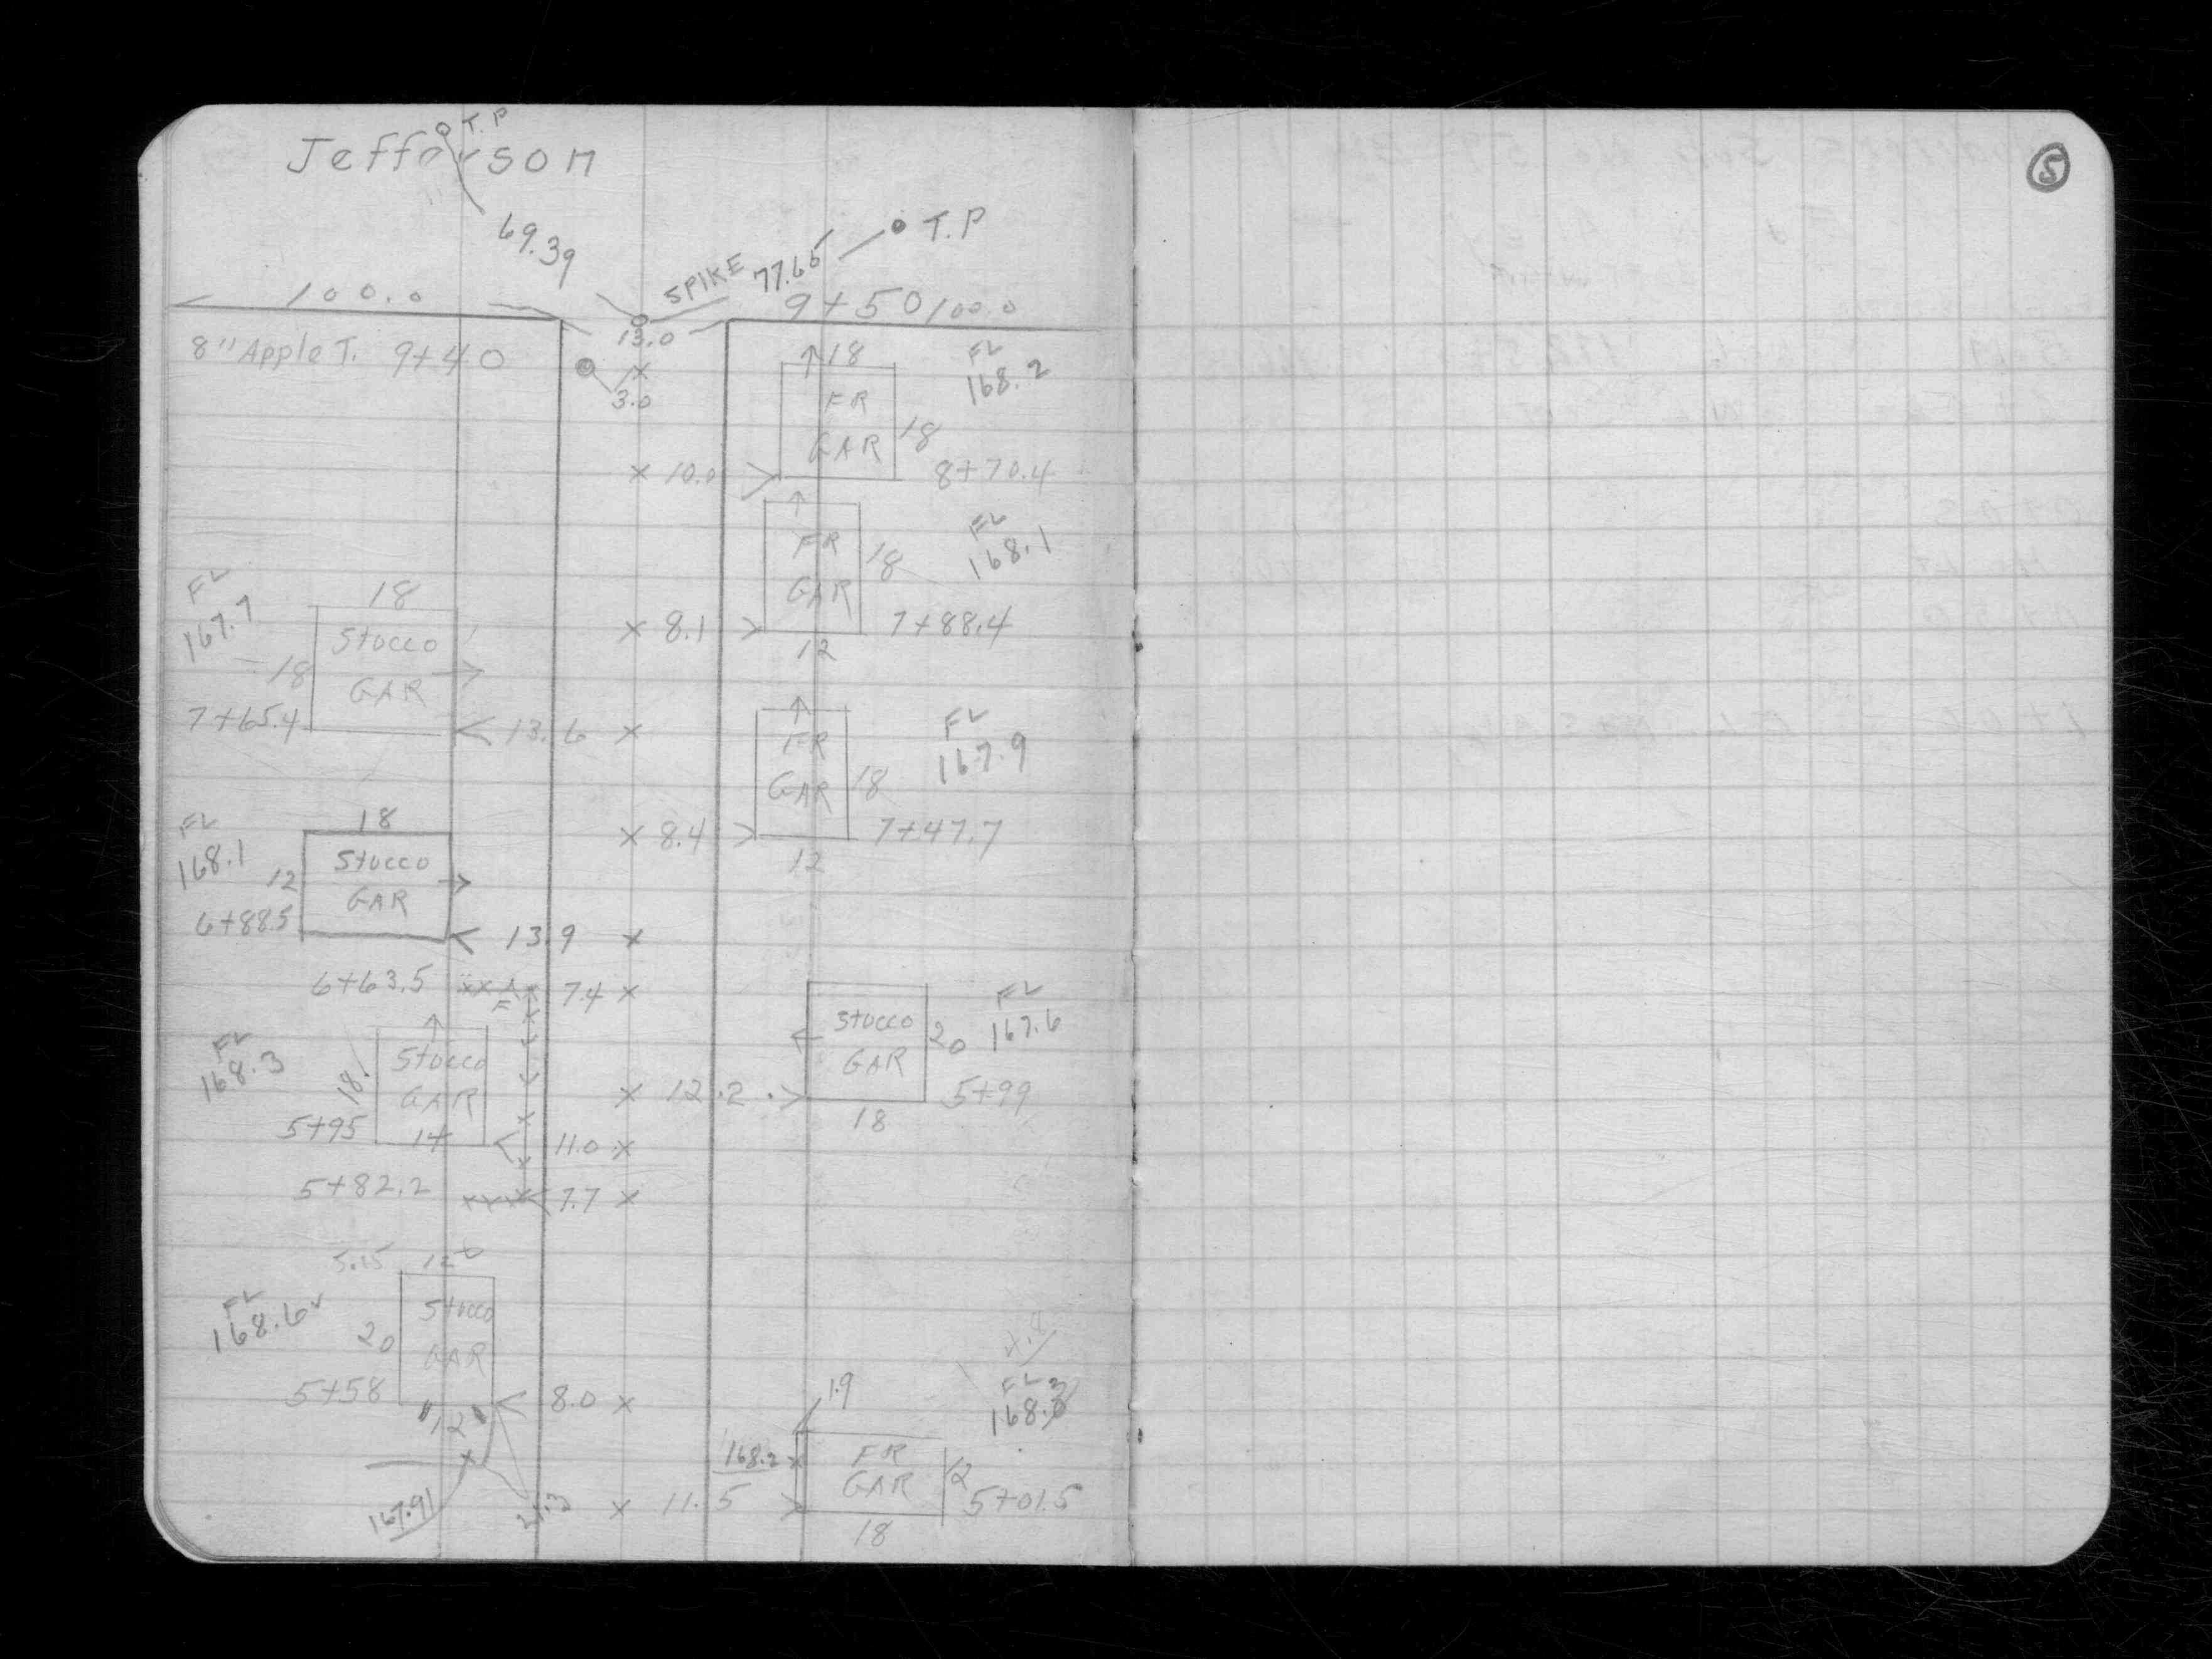 T.P
Jefferson
5
69.39
T.P
SPIKE 77.65
100.0
9+50 100.0
13.0
8" Apple T. 9+40
3.0
18
FL
168.2
FR
GAR
18
× 10.0
8+70.4
FL
168.1
FR
GAR
18
× 8.1
7+88.4
12
FL
167.7
18
Stucco
GAR
18
7+65.4
13.6 ×
FL
167.9
FR
GAR
18
× 8.4
7+47.7
12
FL
168.1
18
Stucco
GAR
12
6+88.5
13.9 ×
6+63.5
7.4 ×
FL
167.6
Stucco
GAR
20
× 12.2
5+99
18
FL
168.3
Stucco
GAR
18
5+95
14
11.0 ×
5+82.2
7.7 ×
5.15
12
FL
168.6
Stucco
GAR
20
5+58
8.0 ×
12
167.91
1.9
FL
168.2
FR
GAR
12
× 11.5
5+01.5
18